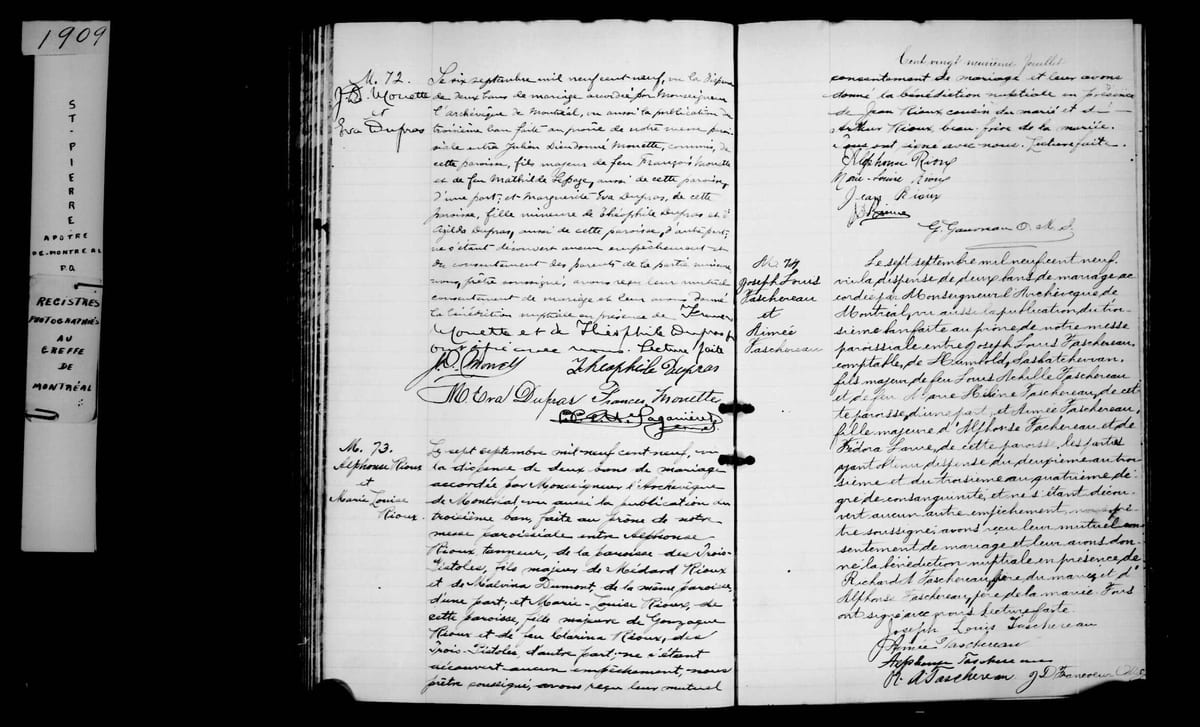 1909
ST-PIERRE
APOTRE
DE-MONTREAL
P.Q
REGISTRES
PHOTOGRAPHIÉS
AU
GREFFE
DE
MONTRÉAL
M. 72.
J.D. Monette
et
Eva Dupras
Le six septembre mil neuf cent neuf, vu la dispense
de deux bans de mariage accordée par Monseigneur
l'archevêque de Montréal, vu aussi la publication du
troisième ban faite au prône de notre messe parois-
siale entre Julien Dieudonné Monette, commis, de
cette paroisse, fils majeur de feu François Monette
et de feu Mathilde Lepage, aussi de cette paroisse,
d'une part; et Marguerite Eva Dupras, de cette
paroisse, fille mineure de Théophile Dupras et d'
Agilda Dupras, aussi de cette paroisse, d'autre part;
ne s'étant découvert aucun empêchement et
du consentement des parents de la partie mineure,
nous, prêtre soussigné, avons reçu leur mutuel
consentement de mariage et leur avons donné
la bénédiction nuptiale en présence de
Monette et de Théophile Dupras
nous. Lecture faite
J.D. Monette Théophile Dupras
M. Eva Dupras Francis Monette
M. 73.
Alphonse Rioux
et
Marie Louise
Rioux.
Le sept septembre mil neuf cent neuf, vu
la dispense de deux bans de mariage
accordée par Monseigneur l'Archevêque
de Montréal, vu aussi la publication du
troisième ban, faite au prône de notre
messe paroissiale entre Alphonse
Rioux, tanneur, de la paroisse des Trois-
Pistoles, fils majeur de Médard Rioux
et de Malvina Dumont, de la même paroisse,
d'une part; et Marie-Louise Rioux, de
cette paroisse, fille majeure de Gonzague
Rioux et de feu Clarina Rioux, des
Trois-Pistoles, d'autre part; ne s'étant
découvert aucun empêchement, nous
prêtre soussigné, avons reçu leur mutuel
Cent vingt neuvième feuillet
consentement de mariage et leur avons
donné la bénédiction nuptiale en présence
de Jean Rioux cousin du marié et d'
Arthur Rioux, beau-frère de la mariée.
Tous ont signé avec nous. Lecture faite.
Alphonse Rioux
Marie-Louise Rioux
Jean Rioux
O.M.I.
M. 74
Joseph Louis
Taschereau
et
Aimée
Taschereau
Le sept septembre mil neuf cent neuf,
vu la dispense de deux bans de mariage ac-
cordée par Monseigneur l'Archevêque de
Montréal, vu aussi la publication du troi-
sième ban faite au prône de notre messe
paroissiale entre Joseph Louis Taschereau,
comptable, de Humbold, Saskatchewan,
fils majeur de feu Louis Achille Taschereau
et de feu Marie Hélène Taschereau, de cet-
te paroisse, d'une part; et Aimée Taschereau,
fille majeure d'Alphonse Taschereau et de
Fédora Larue, de cette paroisse, les parties
ayant obtenu dispense du deuxième au troi-
sième et du troisième au quatrième de-
gré de consanguinité, et ne s'étant décou-
vert aucun autre empêchement, nous prê-
tre soussigné, avons reçu leur mutuel con-
sentement de mariage et leur avons don-
né la bénédiction nuptiale en présence de
Richard A Taschereau, frère du marié, et d'
Alphonse Taschereau, père de la mariée. Tous
ont signé avec nous. Lecture faite.
Joseph Louis Taschereau
Aimée Taschereau
Alphonse Taschereau
R. A Taschereau J D Francoeur